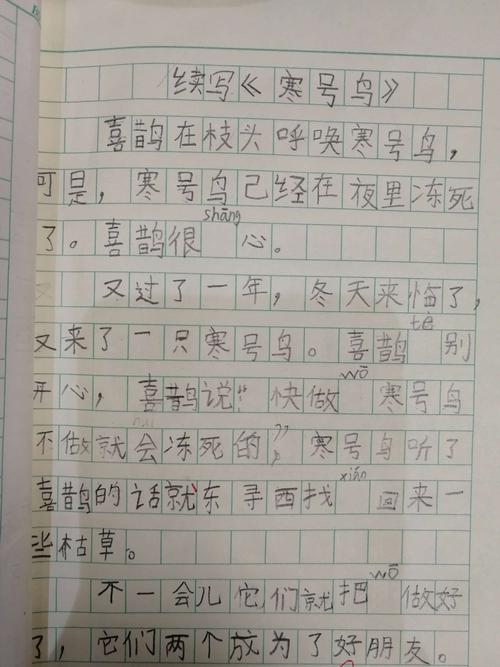 续写《寒号鸟》
喜鹊在枝头呼唤寒号鸟，
可是，寒号鸟己经在夜里冻死
了。喜鹊很shāng心。
又过了一年，冬天来临了，
又来了一只寒号鸟。喜鹊tè别
开心，喜鹊说“快做wō寒号鸟
不做就会冻死的”，寒号鸟听了
喜鹊的话就东寻西找xián回来一
些枯草。
不一会儿它们就把wō做好
了，它们两个成为了好朋友。